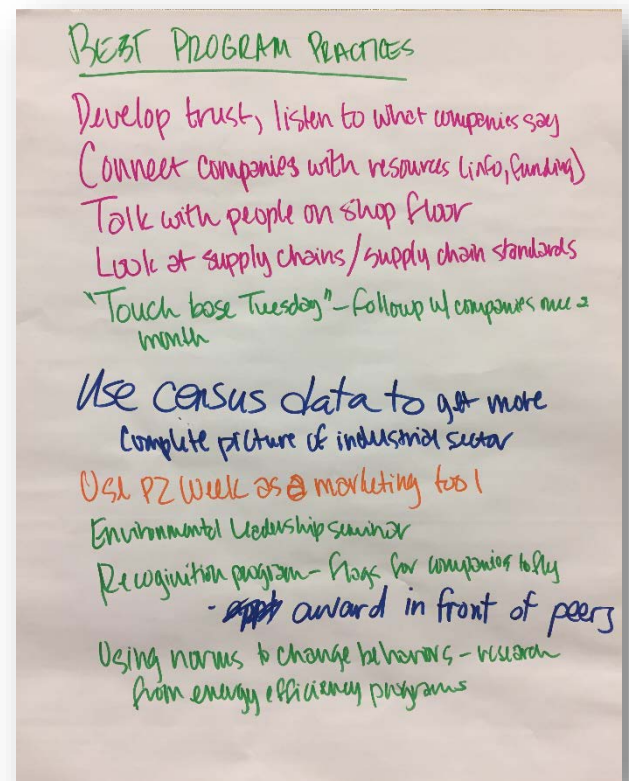 BEST PROGRAM PRACTICES
Develop trust, listen to what companies say
Connect companies with resources (info, funding)
Talk with people on shop floor
Look at supply chains/supply chain standards
"Touch base Tuesday" - followup w/ companies once a
month
Use census data to get more
complete picture of industrial sector
Use P2 Week as a marketing tool
Environmental Leadership seminar
Recoginition program - flags for companies to fly
- award in front of peers
Using norms to change behaviors - research
from energy efficiency programs